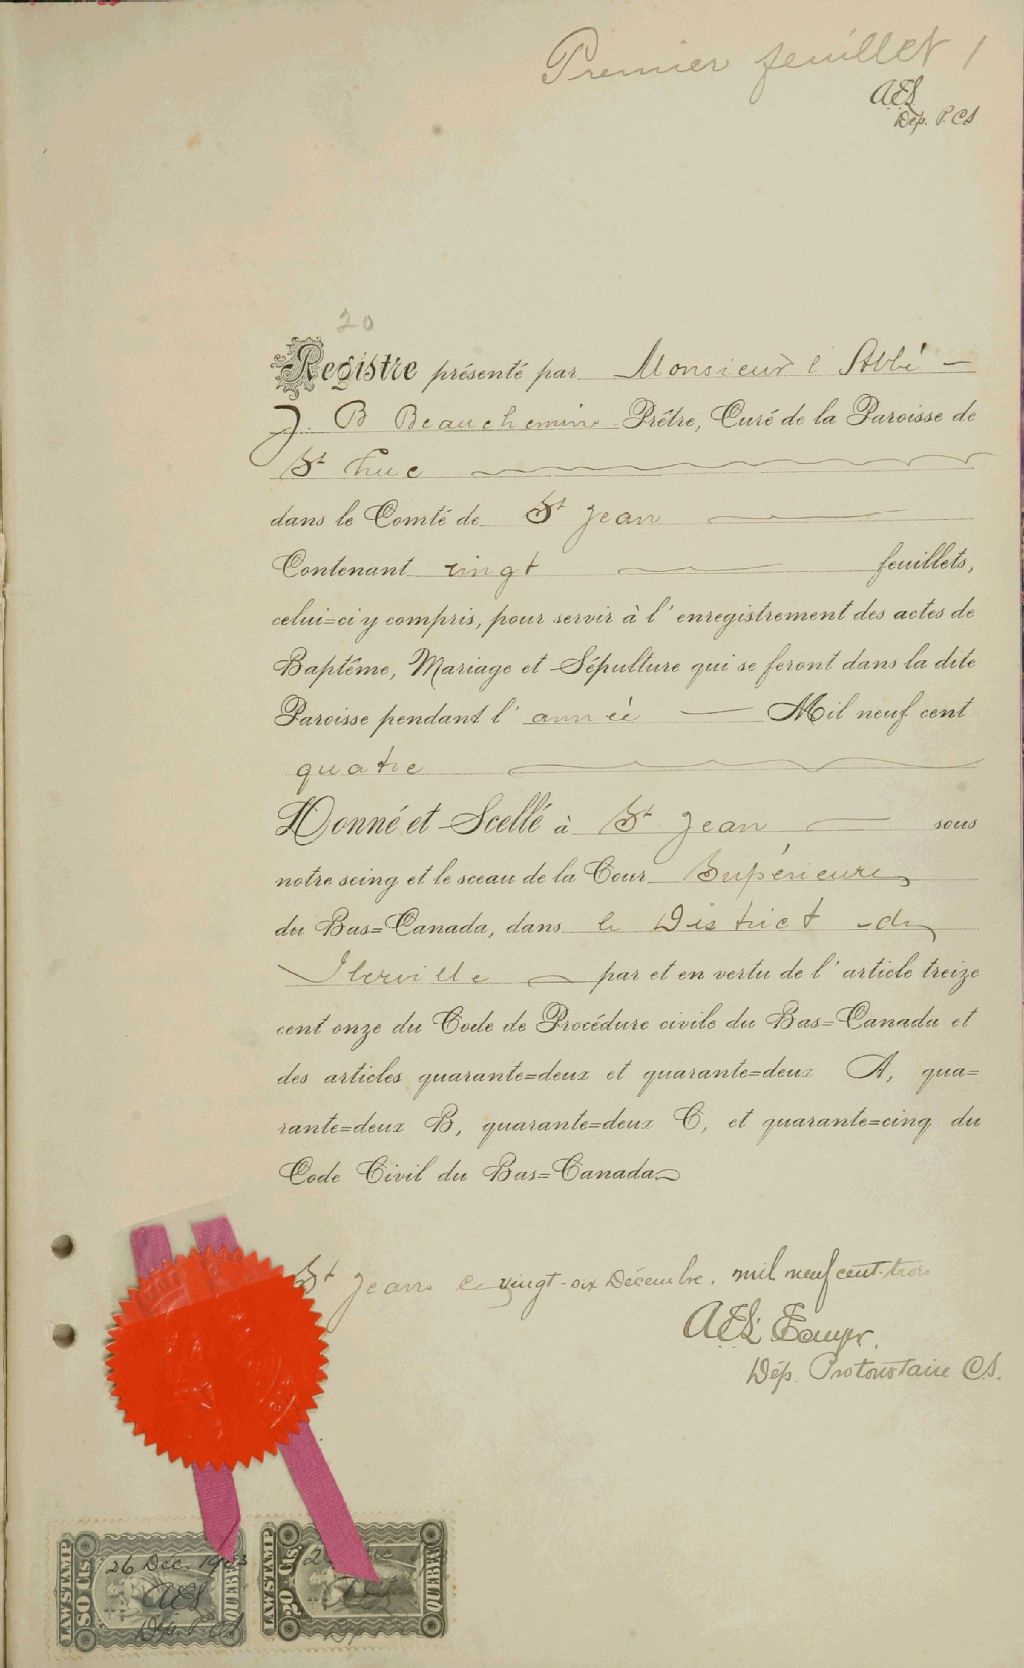 Premier feuillet 1
AES
Dép. P.C.S
20
Registre présenté par Monsieur l'Abbé
J. B. Beauchemin Prêtre, Curé de la Paroisse de
St Luc
dans le Comté de St Jean
Contenant vingt feuillets,
celui=ci y compris, pour servir à l'enregistrement des actes de
Baptême, Mariage et Sépulture qui se feront dans la dite
Paroisse pendant l'année Mil neuf cent
quatre
Donné et Scellé à St Jean sous
notre seing et le sceau de la Cour Supérieure
du Bas=Canada, dans le District de
Iberville par et en vertu de l'article treize
cent onze du Code de Procédure civile du Bas=Canada et
des articles quarante=deux et quarante=deux A, qua=
rante=deux B, quarante=deux C, et quarante=cinq du
Code Civil du Bas=Canada
St Jean ce vingt-six Décembre, mil neuf cent-trois
Dép. Protonotaire C.S.
LAW STAMP
80 Cts.
QUEBEC
26 Dec. 1903
AES
Dép. P.C.S
LAW STAMP
20 Cts.
QUEBEC
AES